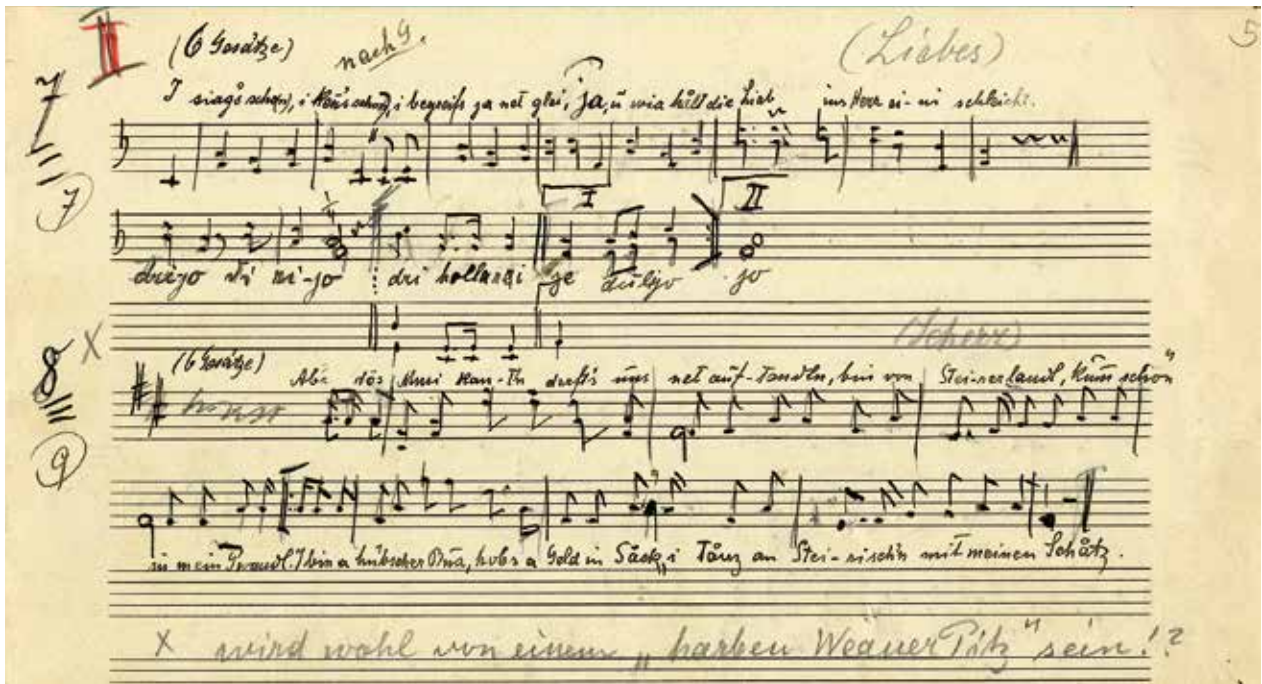 II (6 Gesätze) nach G. (Liebes) 5
7 I siags scho(n), i kenn's scho(n), i begreifs ja net glei, ja, u wia hålt die Liab ins Herz ei-ni schleicht.
7
I II
drijo di ri-jo dri hollarei je dulijo jo
X (Scherz)
8 (6 Gesätze) Aba dös kuni net auf-tandln, bin von Stei-rerlandl, kunn schon"
9
in mein Gwandl. I bin a hübscher Bua, hob a Geld in Såck, i Tånz an Stei-rischn mit meinen Schåtz.
X wird wohl von einem „harben Weaner Pitz" sein!?